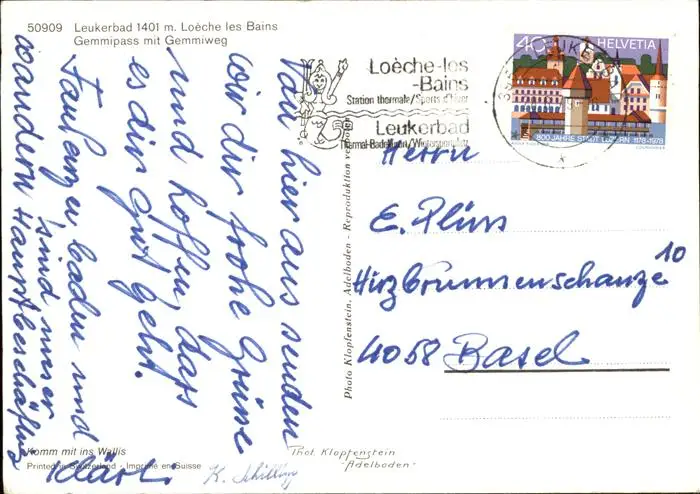 50909 Leukerbad 1401 m. Loèche les Bains
Gemmipass mit Gemmiweg
Von hier aus senden
wir dir frohe Grüsse
und hoffen, dass
es dir gut geht.
Faulenzen, baden und
wandern sind unsere
Hauptbeschäftig
Klärli
K. Schilling
Komm mit ins Wallis
Printed in Switzerland - Imprimé en Suisse
Phot. Klopfenstein
-Adelboden-
Photo Klopfenstein, Adelboden - Reproduktion verboten
Loèche-les
-Bains
Station thermale/Sports d'hiver
Leukerbad
Thermal-Badekurort/Wintersportplatz
40 HELVETIA
800 JAHRE STADT LUZERN 1178-1978
COURVOISIER
Herrn
E. Plüss
Hirzbrunnenschanze 10
4058 Basel